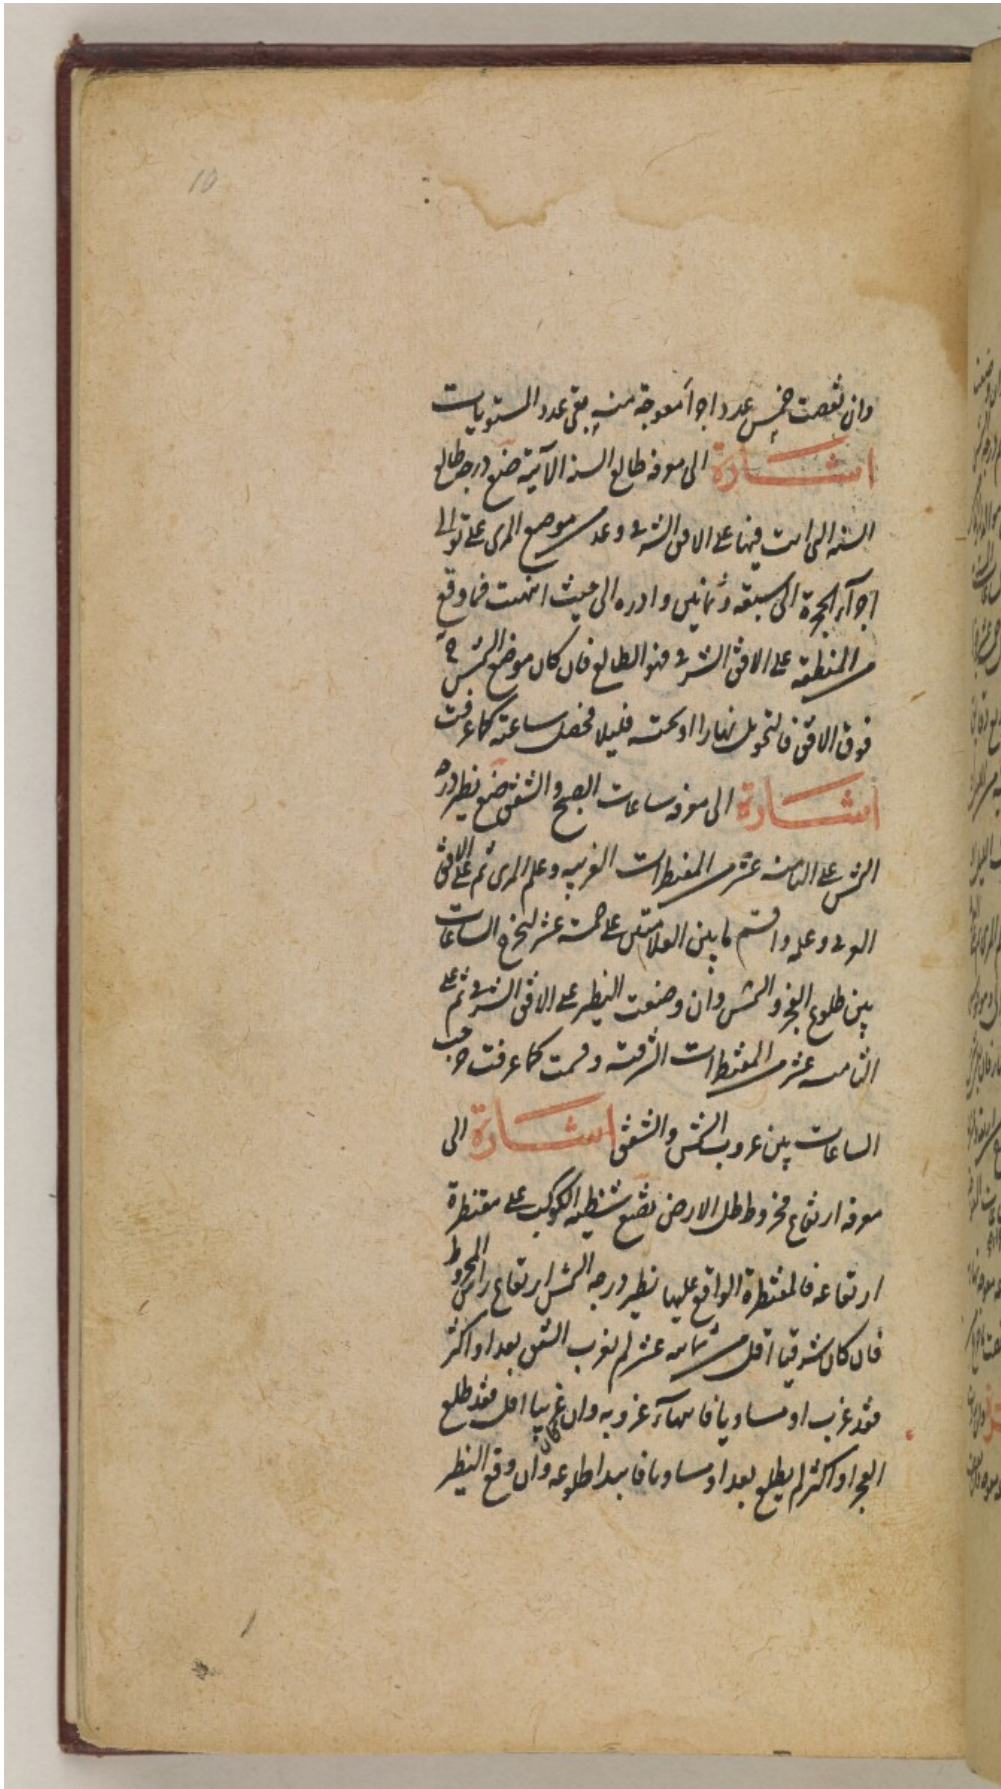 10
وان نقصت خمس عدد اجزاء معوجة منه بقى عدد المستويات
اشارة الى معرفة طالع السنة الآتية ضع درجة طالع
السنة التى انت فيها على الافق الشرقى وعد من موضع المرى على توالى
اجزاء الحجرة الى سبعة وثمانين وادره الى حيث انتهت فما وقع
من المنطقة على الافق الشرقى فهو الطالع فان كان موضع الشمس ح
فوق الافق فالتحويل نهارا او تحته فليلا فحصل ساعته كما عرفت
اشارة الى معرفة ساعات الصبح والشفق ضع نظير درجة
الشمس على الثامنة عشر من المقنطرات الغربية وعلم المرى ثم على الافق
الغربى وعلمه واقسم ما بين العلامتين على خمسة عشر ليخرج الساعات
بين طلوع الفجر والشمس وان وضعت النظير على الافق الشرقى ثم على
الثامنة عشر من المقنطرات الشرقية وقسمت كما عرفت خرجت
الساعات بين غروب الشمس والشفق اشارة الى
معرفة ارتفاع مخروط ظل الارض تضع شظية الكوكب على مقنطرة
ارتفاعه فالمقنطرة الواقع عليها نظير درجة الشمس ارتفاع راس المخروط
فان كان شرقيا اقل من ثمانية عشر لم يغرب الشفق بعد او اكثر
فقد غرب او مساويا فانتهاء غروبه وان كان غربيا اقل فقد طلع
الفجر او اكثر لم يطلع بعد او مساويا فابتداء طلوعه وان وقع النظير